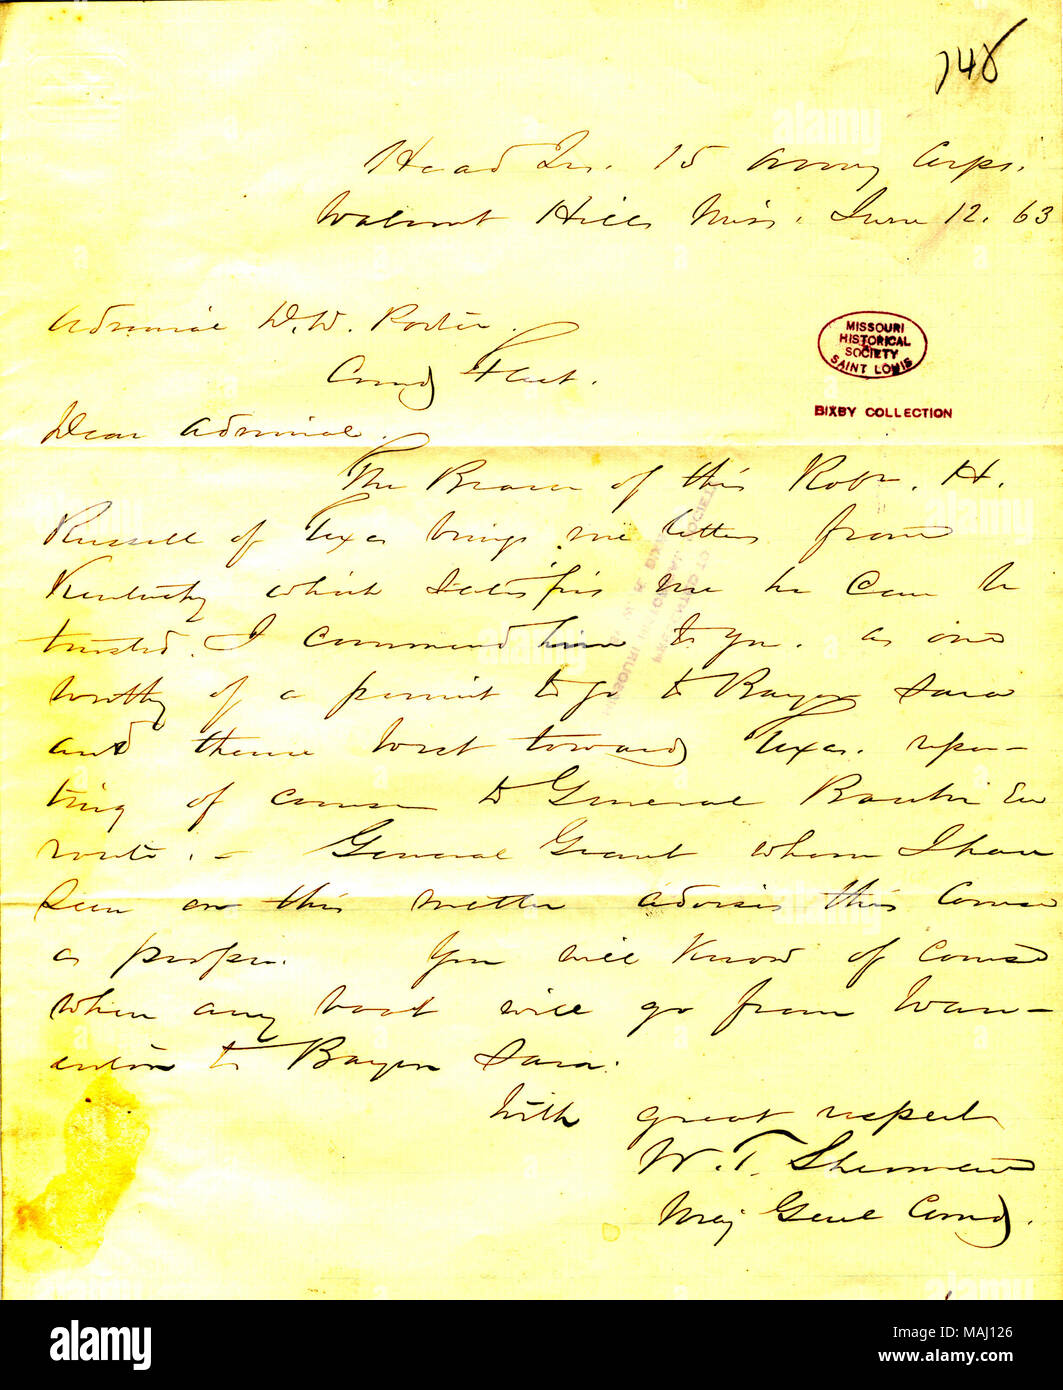 748
Head Qrs. 15 Army Corps.
Walnut Hills Miss. June 12. 63
Admiral D. D. Porter.
Comdg Fleet.
MISSOURI
HISTORICAL
SOCIETY
SAINT LOUIS
BIXBY COLLECTION
Dear Admiral.
The Bearer of this Robr. H.
Russell of Texas brings me letters from
Kentucky which satisfies me he can be
trusted. I commend him to you. as one
worthy of a permit to go to Bayou Sara
and thence West toward Texas. repor-
ting of course to General Banks En
route. - General Grant whom I have
seen on this matter advises this course
as proper. You will know of course
when any boat will go from Warr-
enton to Bayou Sara.
With great respect
W. T. Sherman
Maj Genl Comdg.
alamy
Image ID: MAJ126
www.alamy.com